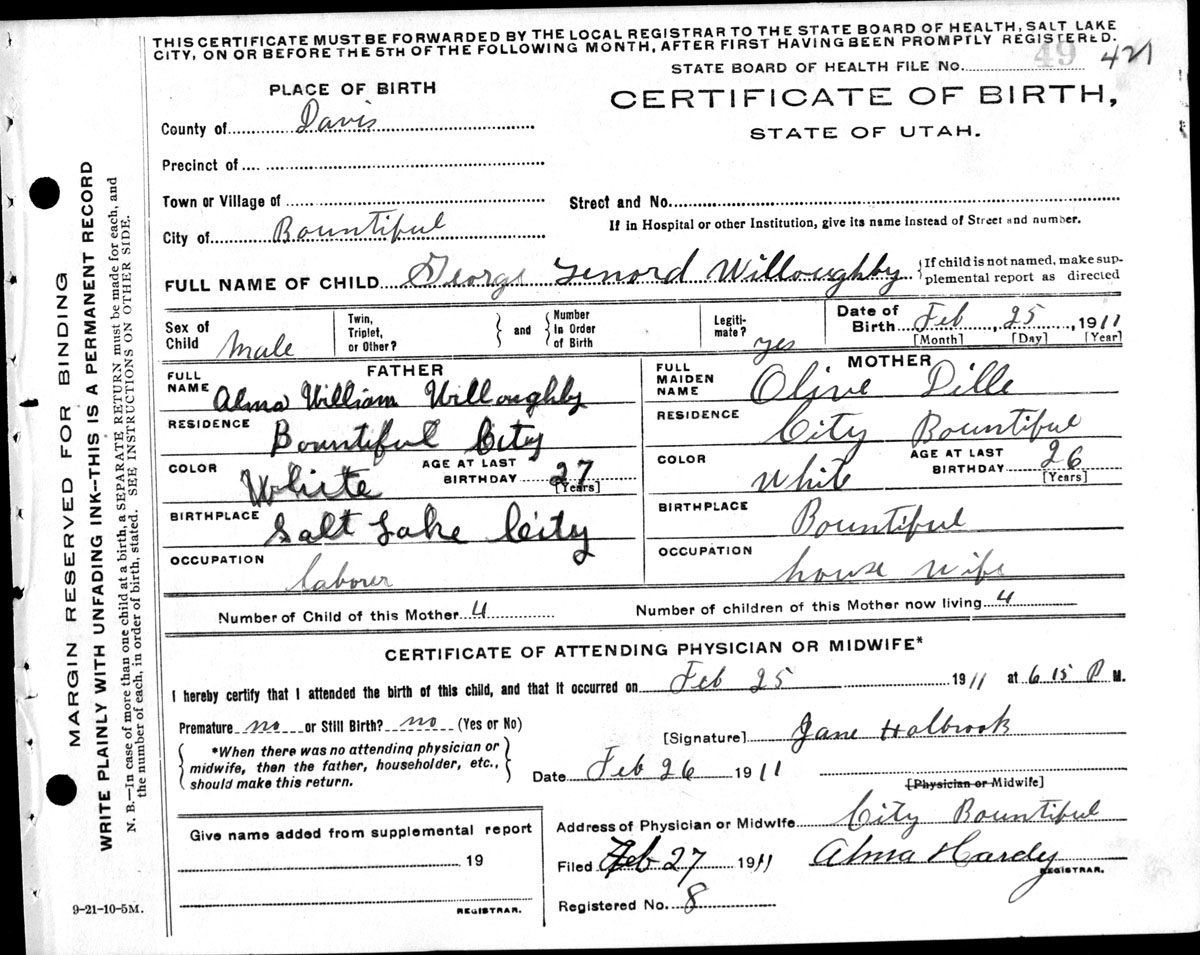 THIS CERTIFICATE MUST BE FORWARDED BY THE LOCAL REGISTRAR TO THE STATE BOARD OF HEALTH, SALT LAKE
CITY, ON OR BEFORE THE 5TH OF THE FOLLOWING MONTH, AFTER FIRST HAVING BEEN PROMPTLY REGISTERED.
STATE BOARD OF HEALTH FILE No. 49 421
PLACE OF BIRTH
CERTIFICATE OF BIRTH,
STATE OF UTAH.
County of Davis
Precinct of
Town or Village of
Street and No.
City of Bountiful
If in Hospital or other Institution, give its name instead of Street and number.
FULL NAME OF CHILD George Lenord Willoughby {If child is not named, make supplemental report as directed
Sex of Child Male
Twin, Triplet, or Other? } and { Number In Order of Birth
Legitimate? yes
Date of Birth Feb, 25, 1911
[Month] [Day] [Year]
FATHER
FULL NAME Alma William Willoughby
RESIDENCE Bountiful City
COLOR White AGE AT LAST BIRTHDAY 27 [Years]
BIRTHPLACE Salt Lake City
OCCUPATION laborer
MOTHER
FULL MAIDEN NAME Olive Dille
RESIDENCE City Bountiful
COLOR White AGE AT LAST BIRTHDAY 26 [Years]
BIRTHPLACE Bountiful
OCCUPATION house wife
Number of Child of this Mother 4 Number of children of this Mother now living 4
CERTIFICATE OF ATTENDING PHYSICIAN OR MIDWIFE*
I hereby certify that I attended the birth of this child, and that it occurred on Feb 25 1911 at 6 15 P M.
Premature no or Still Birth? no (Yes or No)
{*When there was no attending physician or
midwife, then the father, householder, etc.,
should make this return.}
[Signature] Jane Holbrook
Date Feb 26 1911
[Physician or Midwife]
Give name added from supplemental report
19
REGISTRAR.
Address of Physician or Midwife City Bountiful
Filed Feb 27 1911 Alma Hardy
REGISTRAR.
Registered No. 8
9-21-10-5M.
MARGIN RESERVED FOR BINDING
WRITE PLAINLY WITH UNFADING INK--THIS IS A PERMANENT RECORD
N. B.—In case of more than one child at a birth, a SEPARATE RETURN must be made for each, and
the number of each, in order of birth, stated. SEE INSTRUCTIONS ON OTHER SIDE.